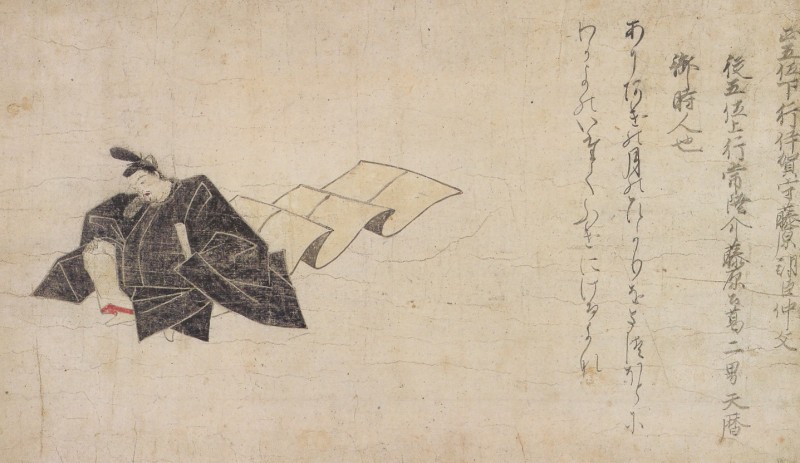 正五位下行伊賀守藤原朝臣仲文
從五位上行常陸介藤原公葛二男天暦
御時人也
ありあけの月のひかりをまつほとに
わかよのいたくふけにけるかな